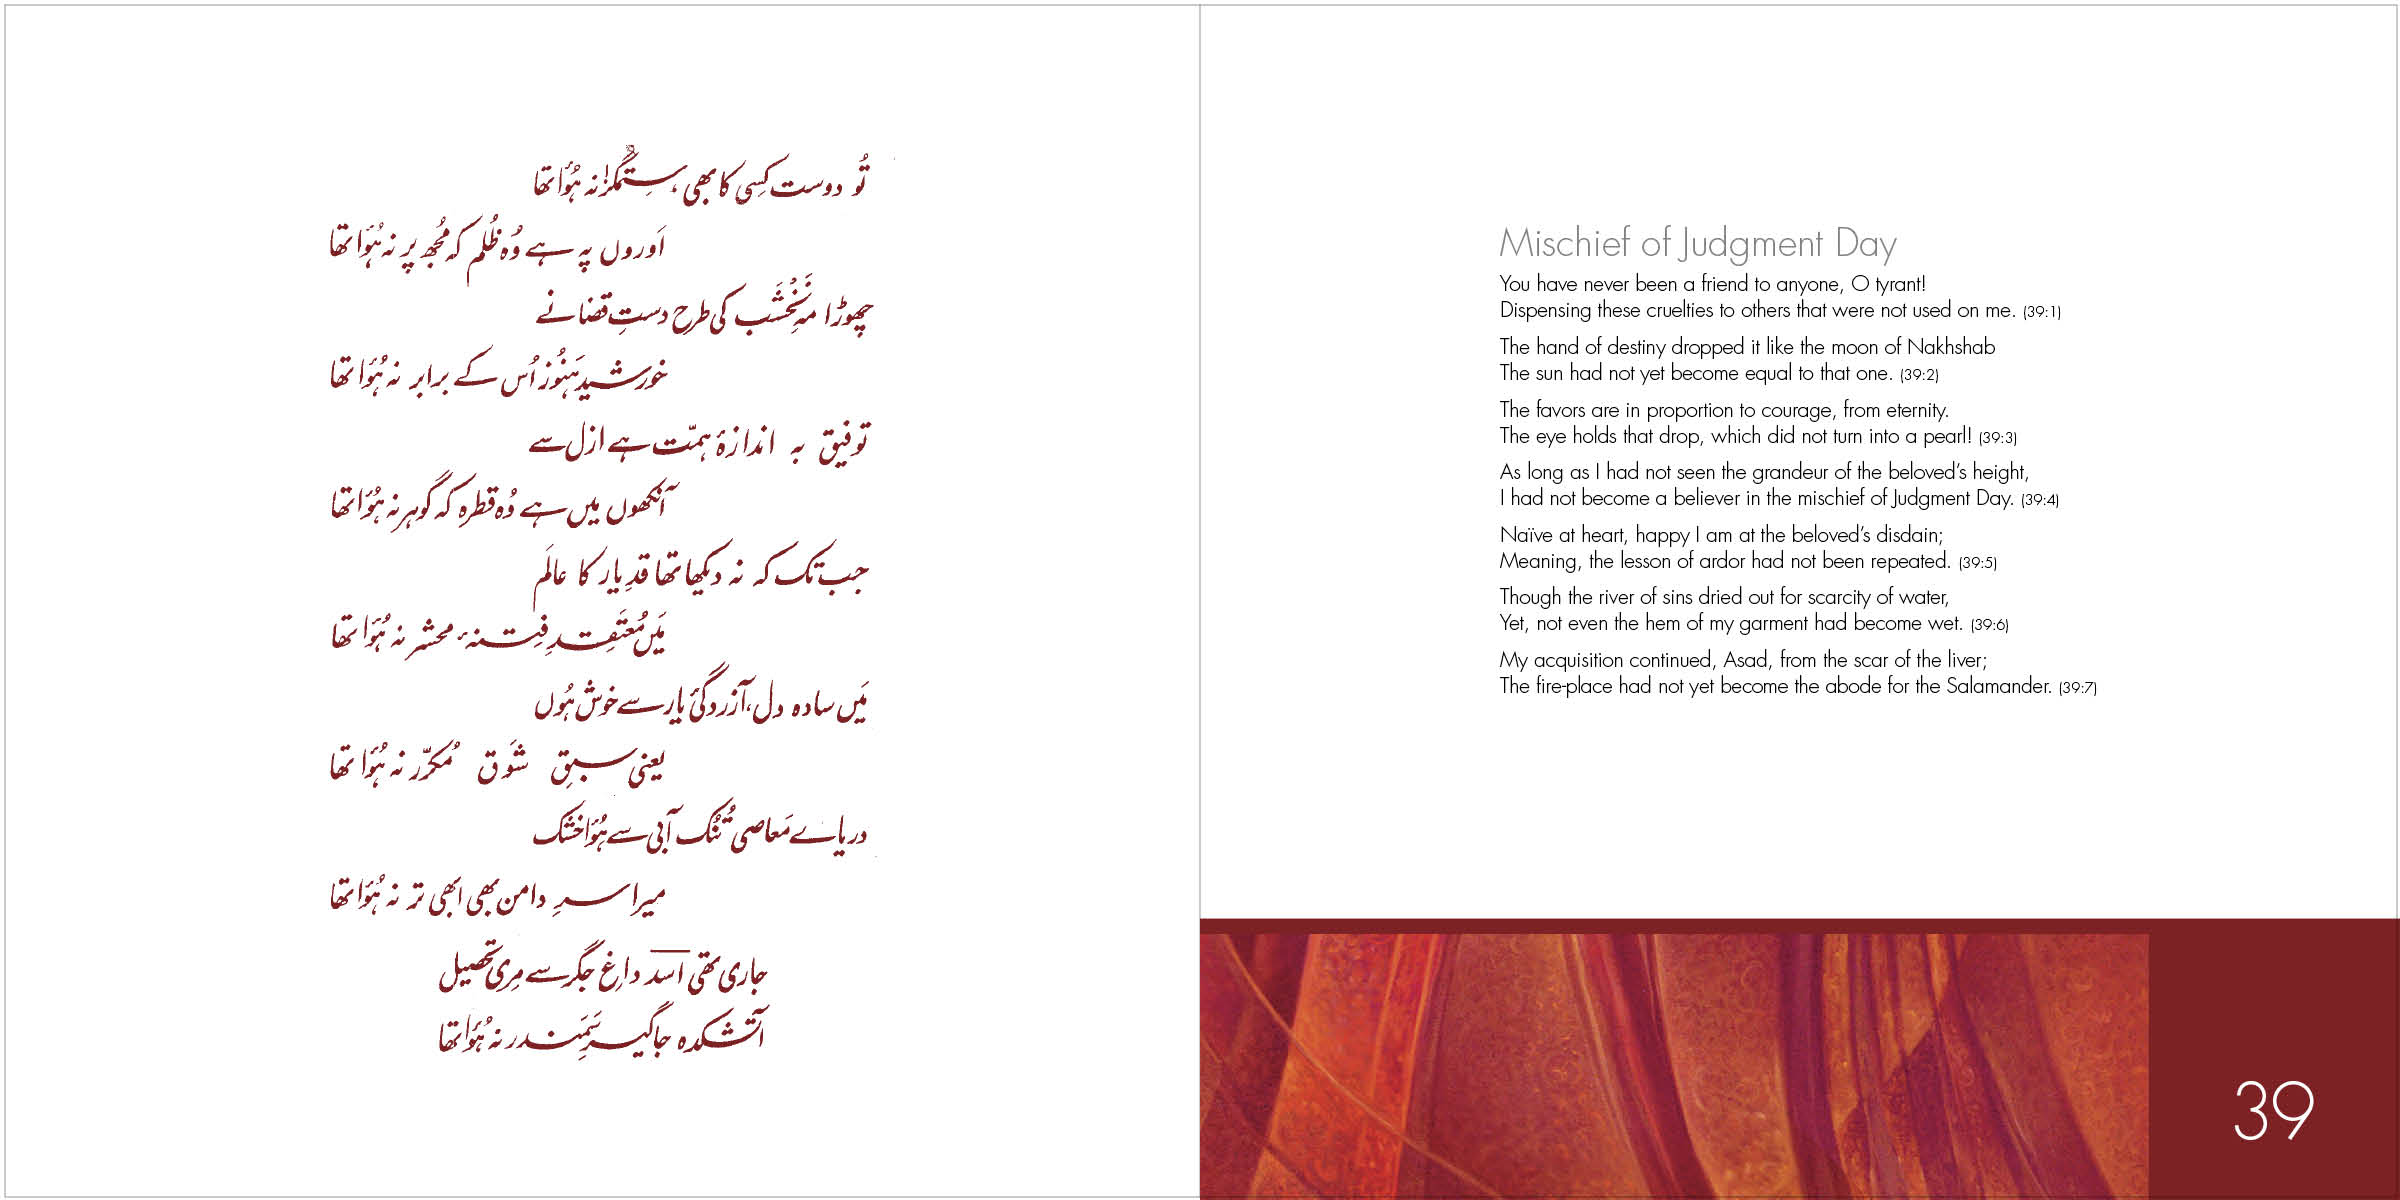 تُو دوست کِسی کا بھی، سِتمگر! نہ ہُوٴا تھا
اَوروں پہ ہے وُہ ظُلم کہ مُجھ پر نہ ہُوٴا تھا
چھوڑا مہِ نَخْشَب کی طرح دستِ قضا نے
خورشید ہَنُوز اُس کے برابر نہ ہُوٴا تھا
توفیق بہ اندازۂ ہمّت ہے ازل سے
آنکھوں میں ہے وُہ قطرہ کہ گوہر نہ ہُوٴا تھا
جب تک کہ نہ دیکھا تھا قدِ یار کا عالَم
مَیں مُعتَقِدِ فِتنۂ محشر نہ ہُوٴا تھا
مَیں سادہ دل، آزردگیٔ یار سے خوش ہُوں
یعنی سبقِ شَوق مُکرّر نہ ہُوٴا تھا
دریاے مَعاصی تُنُک آبی سے ہُوٴا خشک
میرا سرِ دامن بھی ابھی تر نہ ہُوٴا تھا
جاری تھی اسد داغِ جگر سے مِری تحصیل
آتشکدہ جاگیرِ سَمَندر نہ ہُوٴا تھا
Mischief of Judgment Day
You have never been a friend to anyone, O tyrant!
Dispensing these cruelties to others that were not used on me. (39:1)
The hand of destiny dropped it like the moon of Nakhshab
The sun had not yet become equal to that one. (39:2)
The favors are in proportion to courage, from eternity.
The eye holds that drop, which did not turn into a pearl! (39:3)
As long as I had not seen the grandeur of the beloved's height,
I had not become a believer in the mischief of Judgment Day. (39:4)
Naïve at heart, happy I am at the beloved's disdain;
Meaning, the lesson of ardor had not been repeated. (39:5)
Though the river of sins dried out for scarcity of water,
Yet, not even the hem of my garment had become wet. (39:6)
My acquisition continued, Asad, from the scar of the liver;
The fire-place had not yet become the abode for the Salamander. (39:7)
39